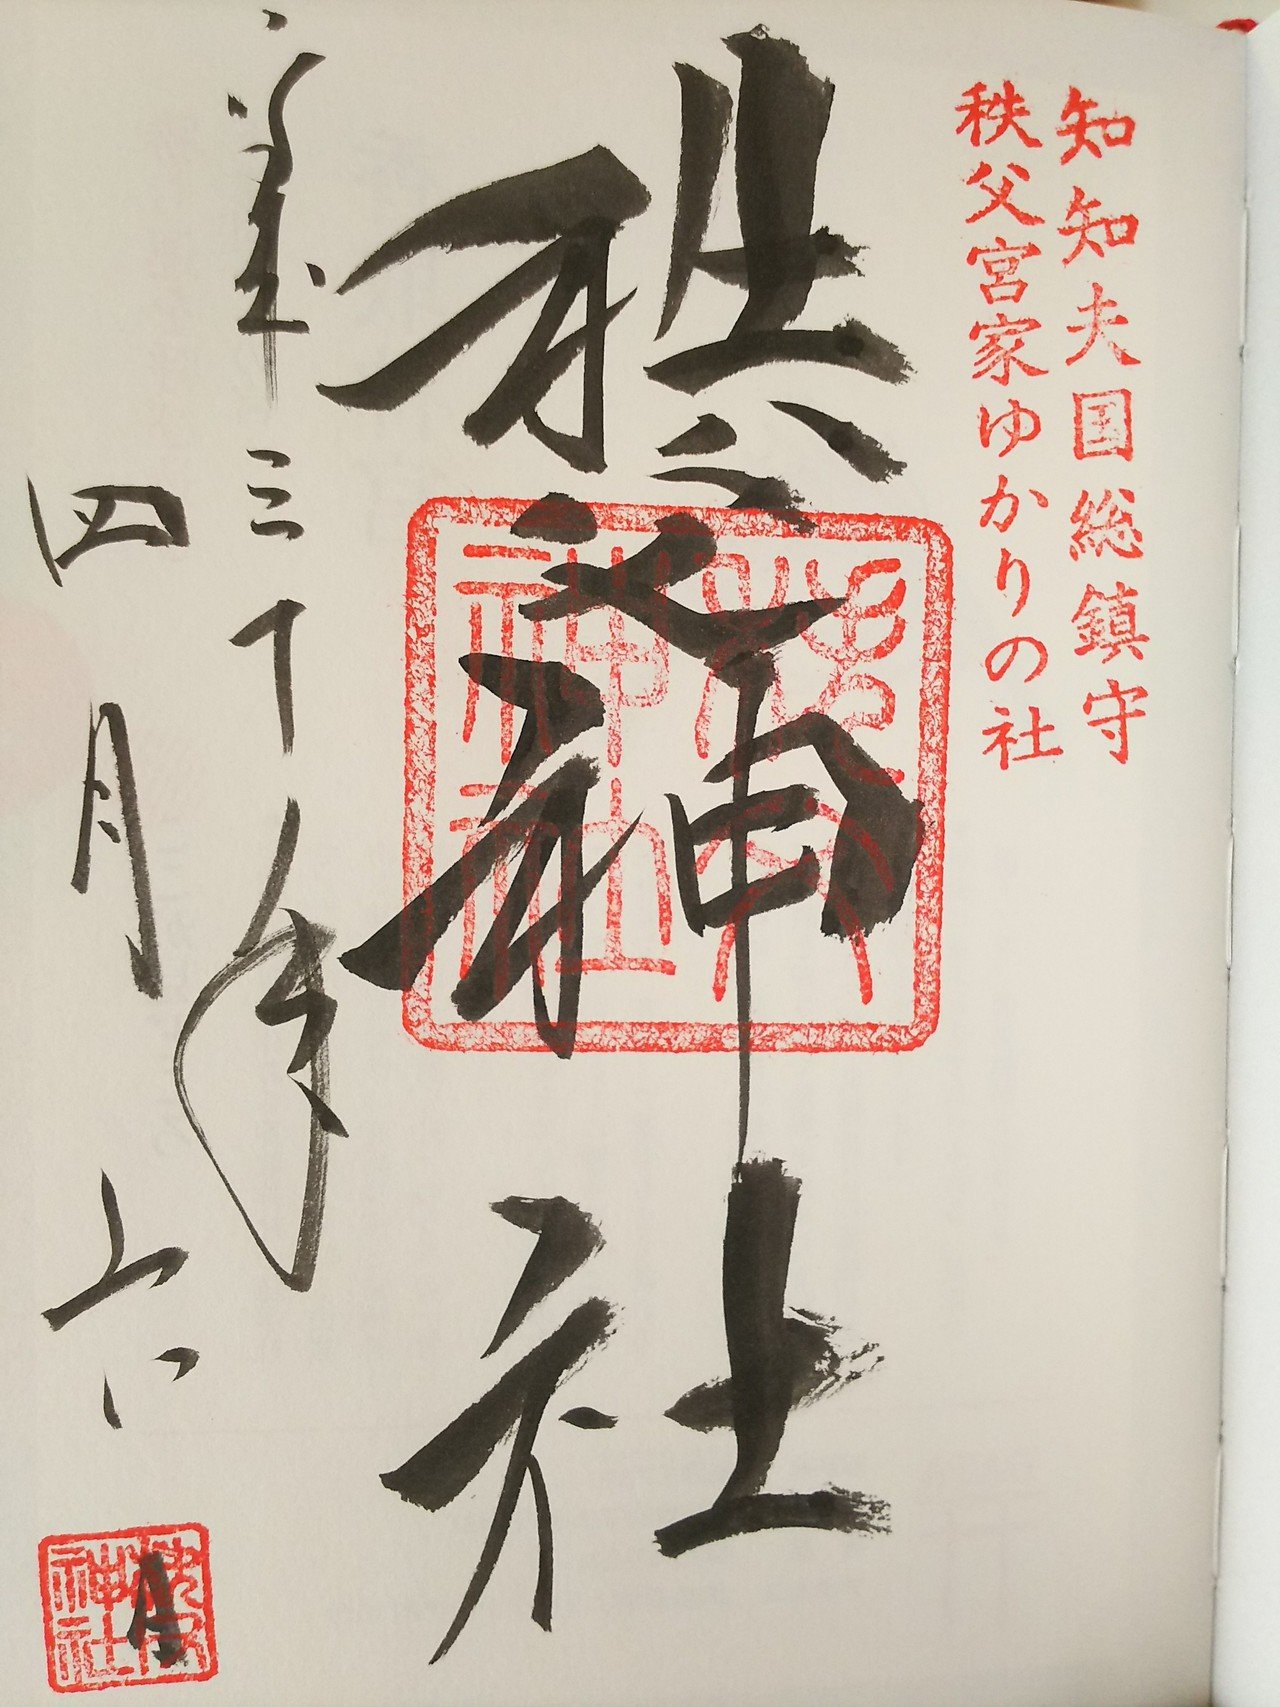 知知夫国総鎮守
秩父宮家ゆかりの社
秩父神社
秩父神社
平成三十年
四月六日
秩父神社